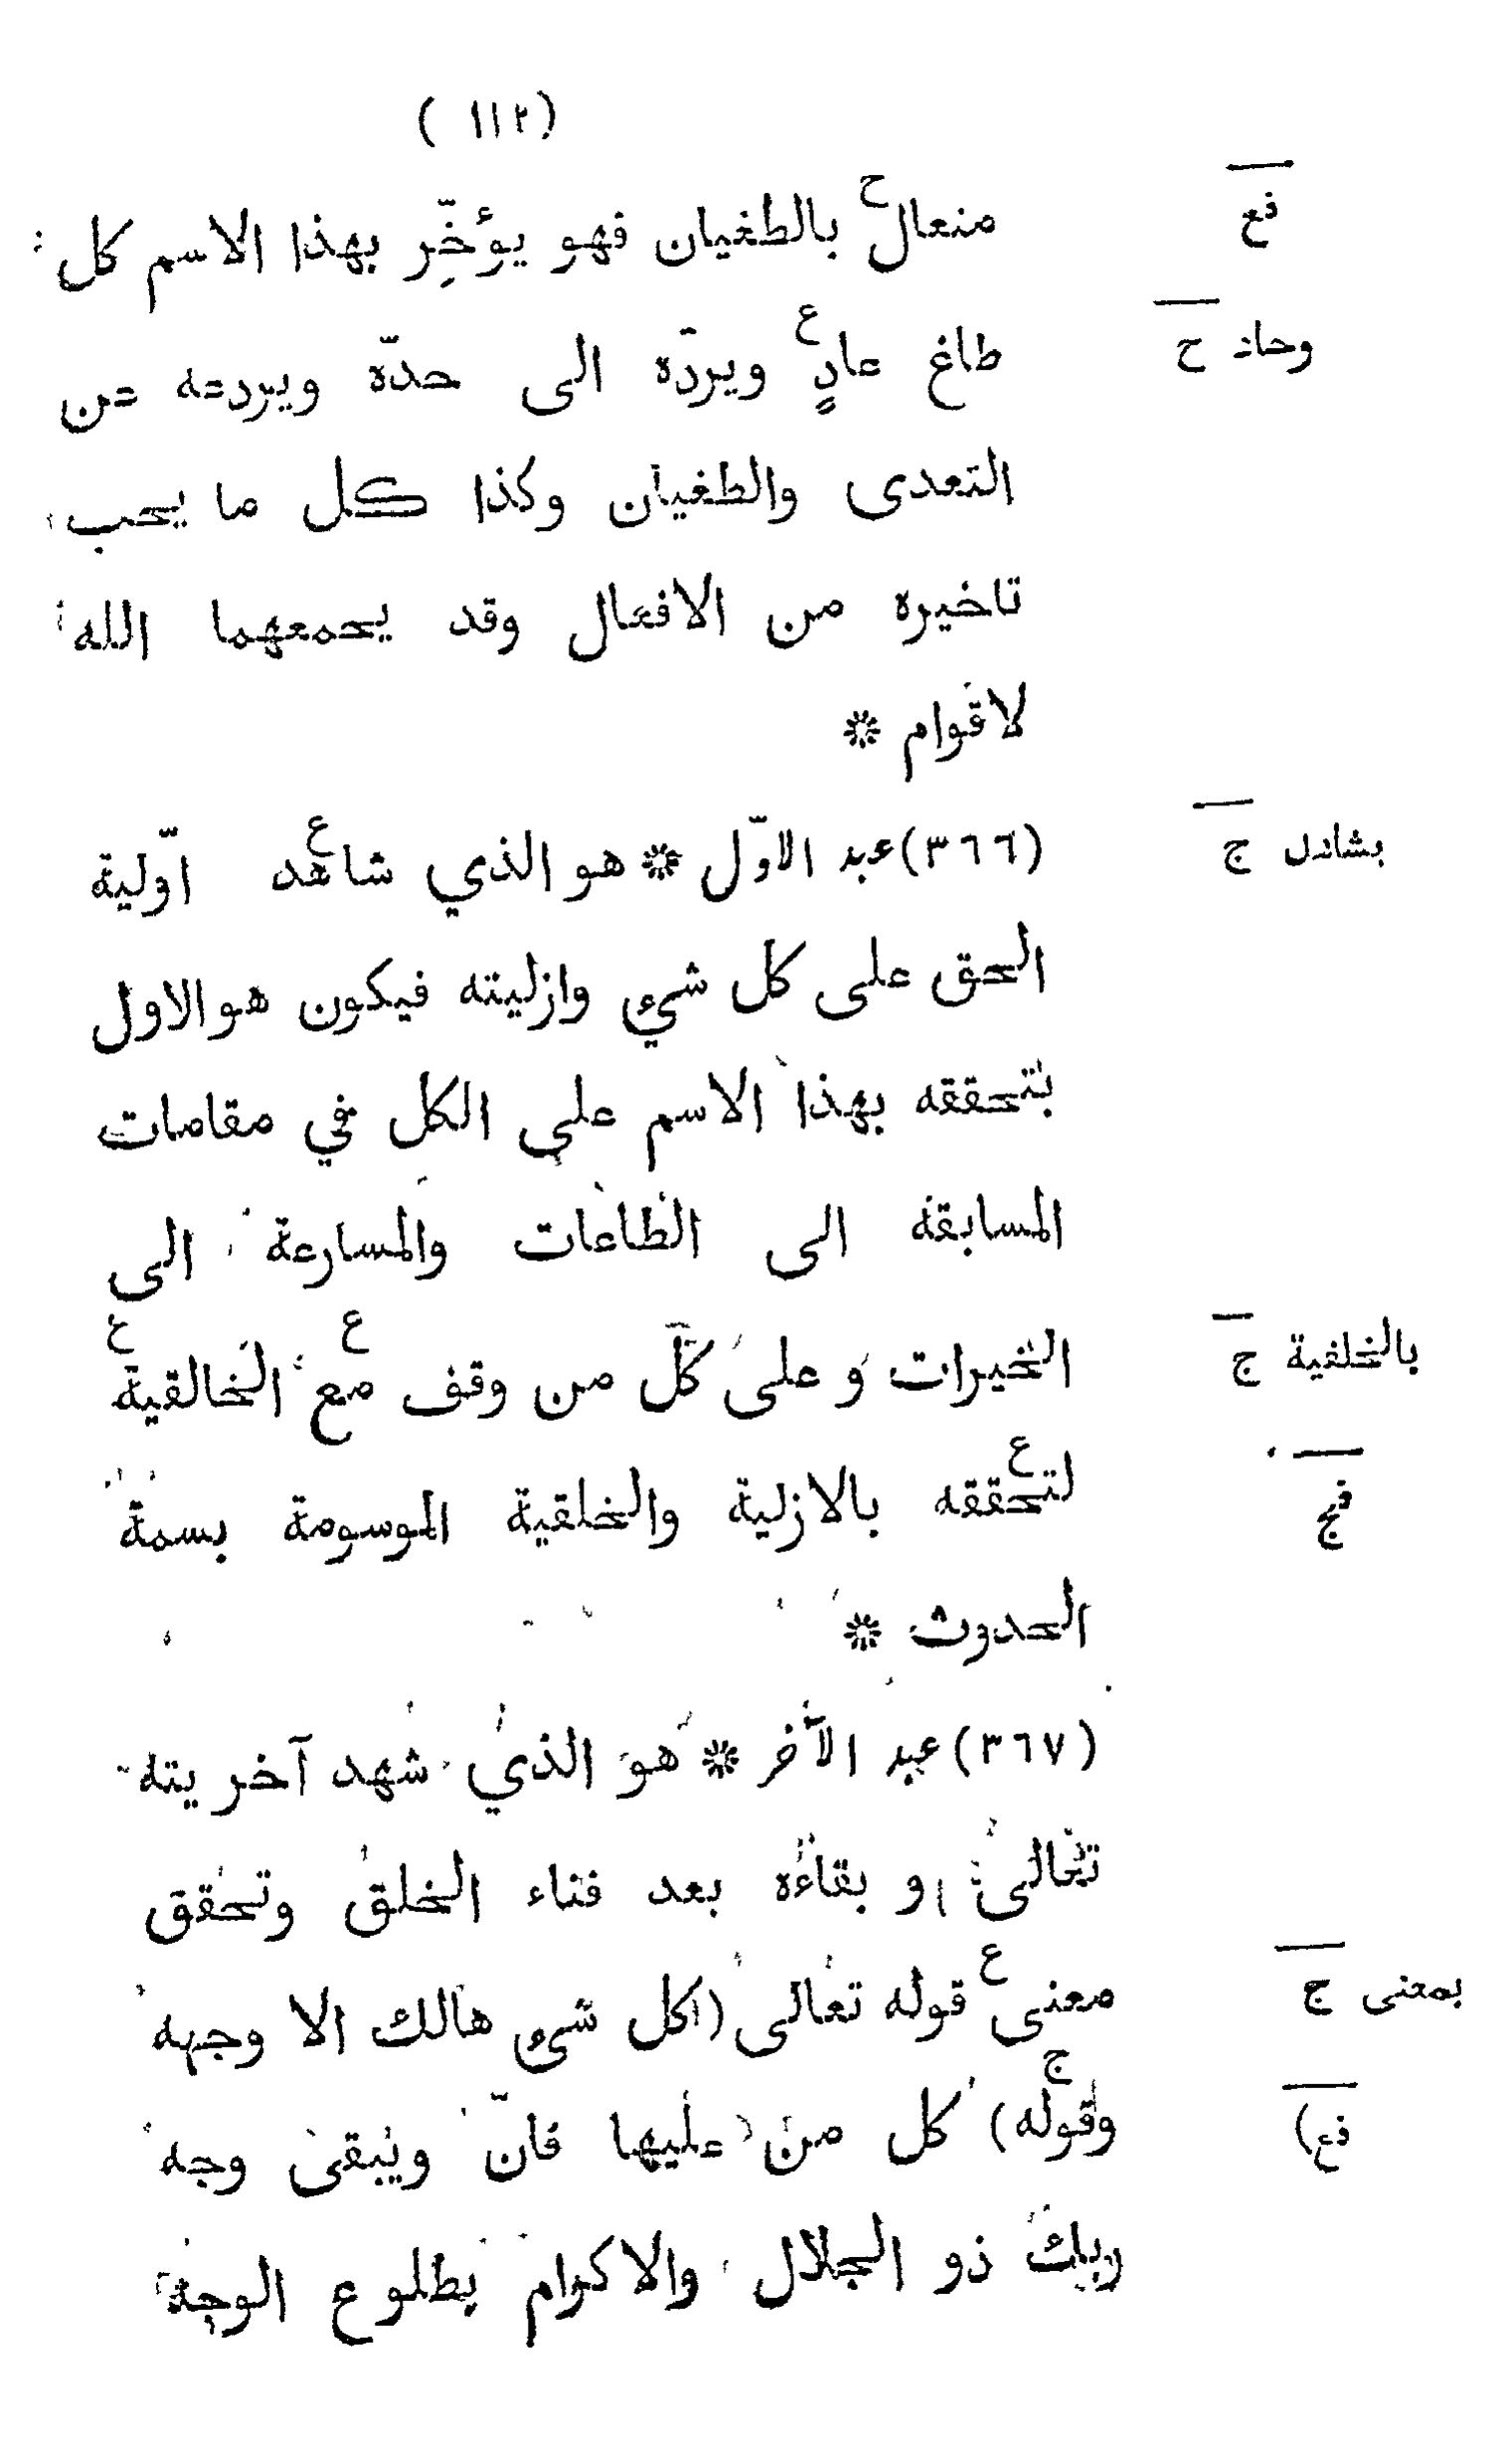 (١١٢)
منعال بالطغيان فهو يوٴخِّر بهذا الاسم كل
طاغ عادٍ ويردّه الى حدّه ويردعه عن
التعدى والطغيان وكذا كل ما يحب
تاخيره من الافعال وقد يحمعهما الله
لاقوام *
(٣٦٦) عبد الاوّل * هو الذي شاهد اوّلية
الحق على كل شيء وازليته فيكون هو الاول
بتحققه بهذا الاسم على الكل في مقامات
المسابقة الى الطاعات والمسارعة الى
الخيرات و على كلّ من وقف مع الخالقية
لتحققه بالازلية والخلقية الموسومة بسمة
الحدوث *
(٣٦٧) عبد الآخر * هو الذي شهد آخريته
تعالى او بقاءه بعد فناء الخلق وتحقق
معنى قوله تعالى (كل شىء هالك الا وجهه
وقوله) كل من عليها فانّ ويبقى وجه
ربك ذو الجلال والاكرام بطلوع الوجه
فع
ح
بشاهد ج
بالخلفية ج
فج
بمعنى ج
فع)